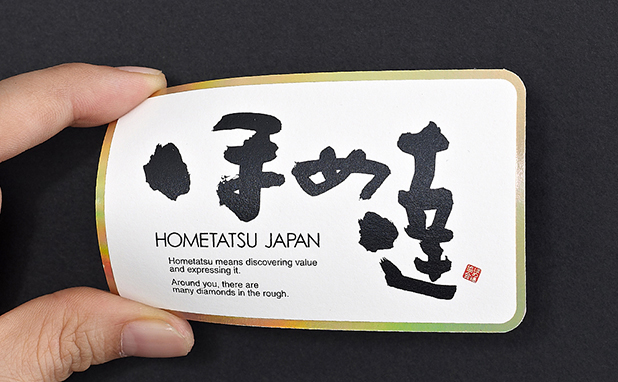 ほめ達
HOMETATSU JAPAN
Hometatsu means discovering value
and expressing it.
Around you, there are
many diamonds in the rough.